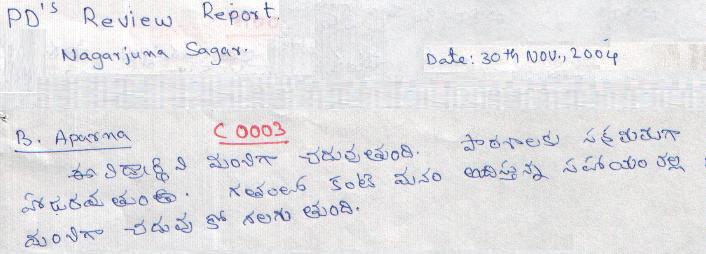 PD'S Review Report.
Nagarjuna Sagar.
Date: 30th NOV., 2004
B. Aparna C 0003
ఈ విద్యార్థిని మంచిగా చదువుతుంది. పాఠశాలకు సక్రమముగా
హాజరవుతుంది. గతంలో కంటె మనం అందిస్తున్న సహాయం వల్ల
మంచిగా చదువుకో గలుగుతుంది.